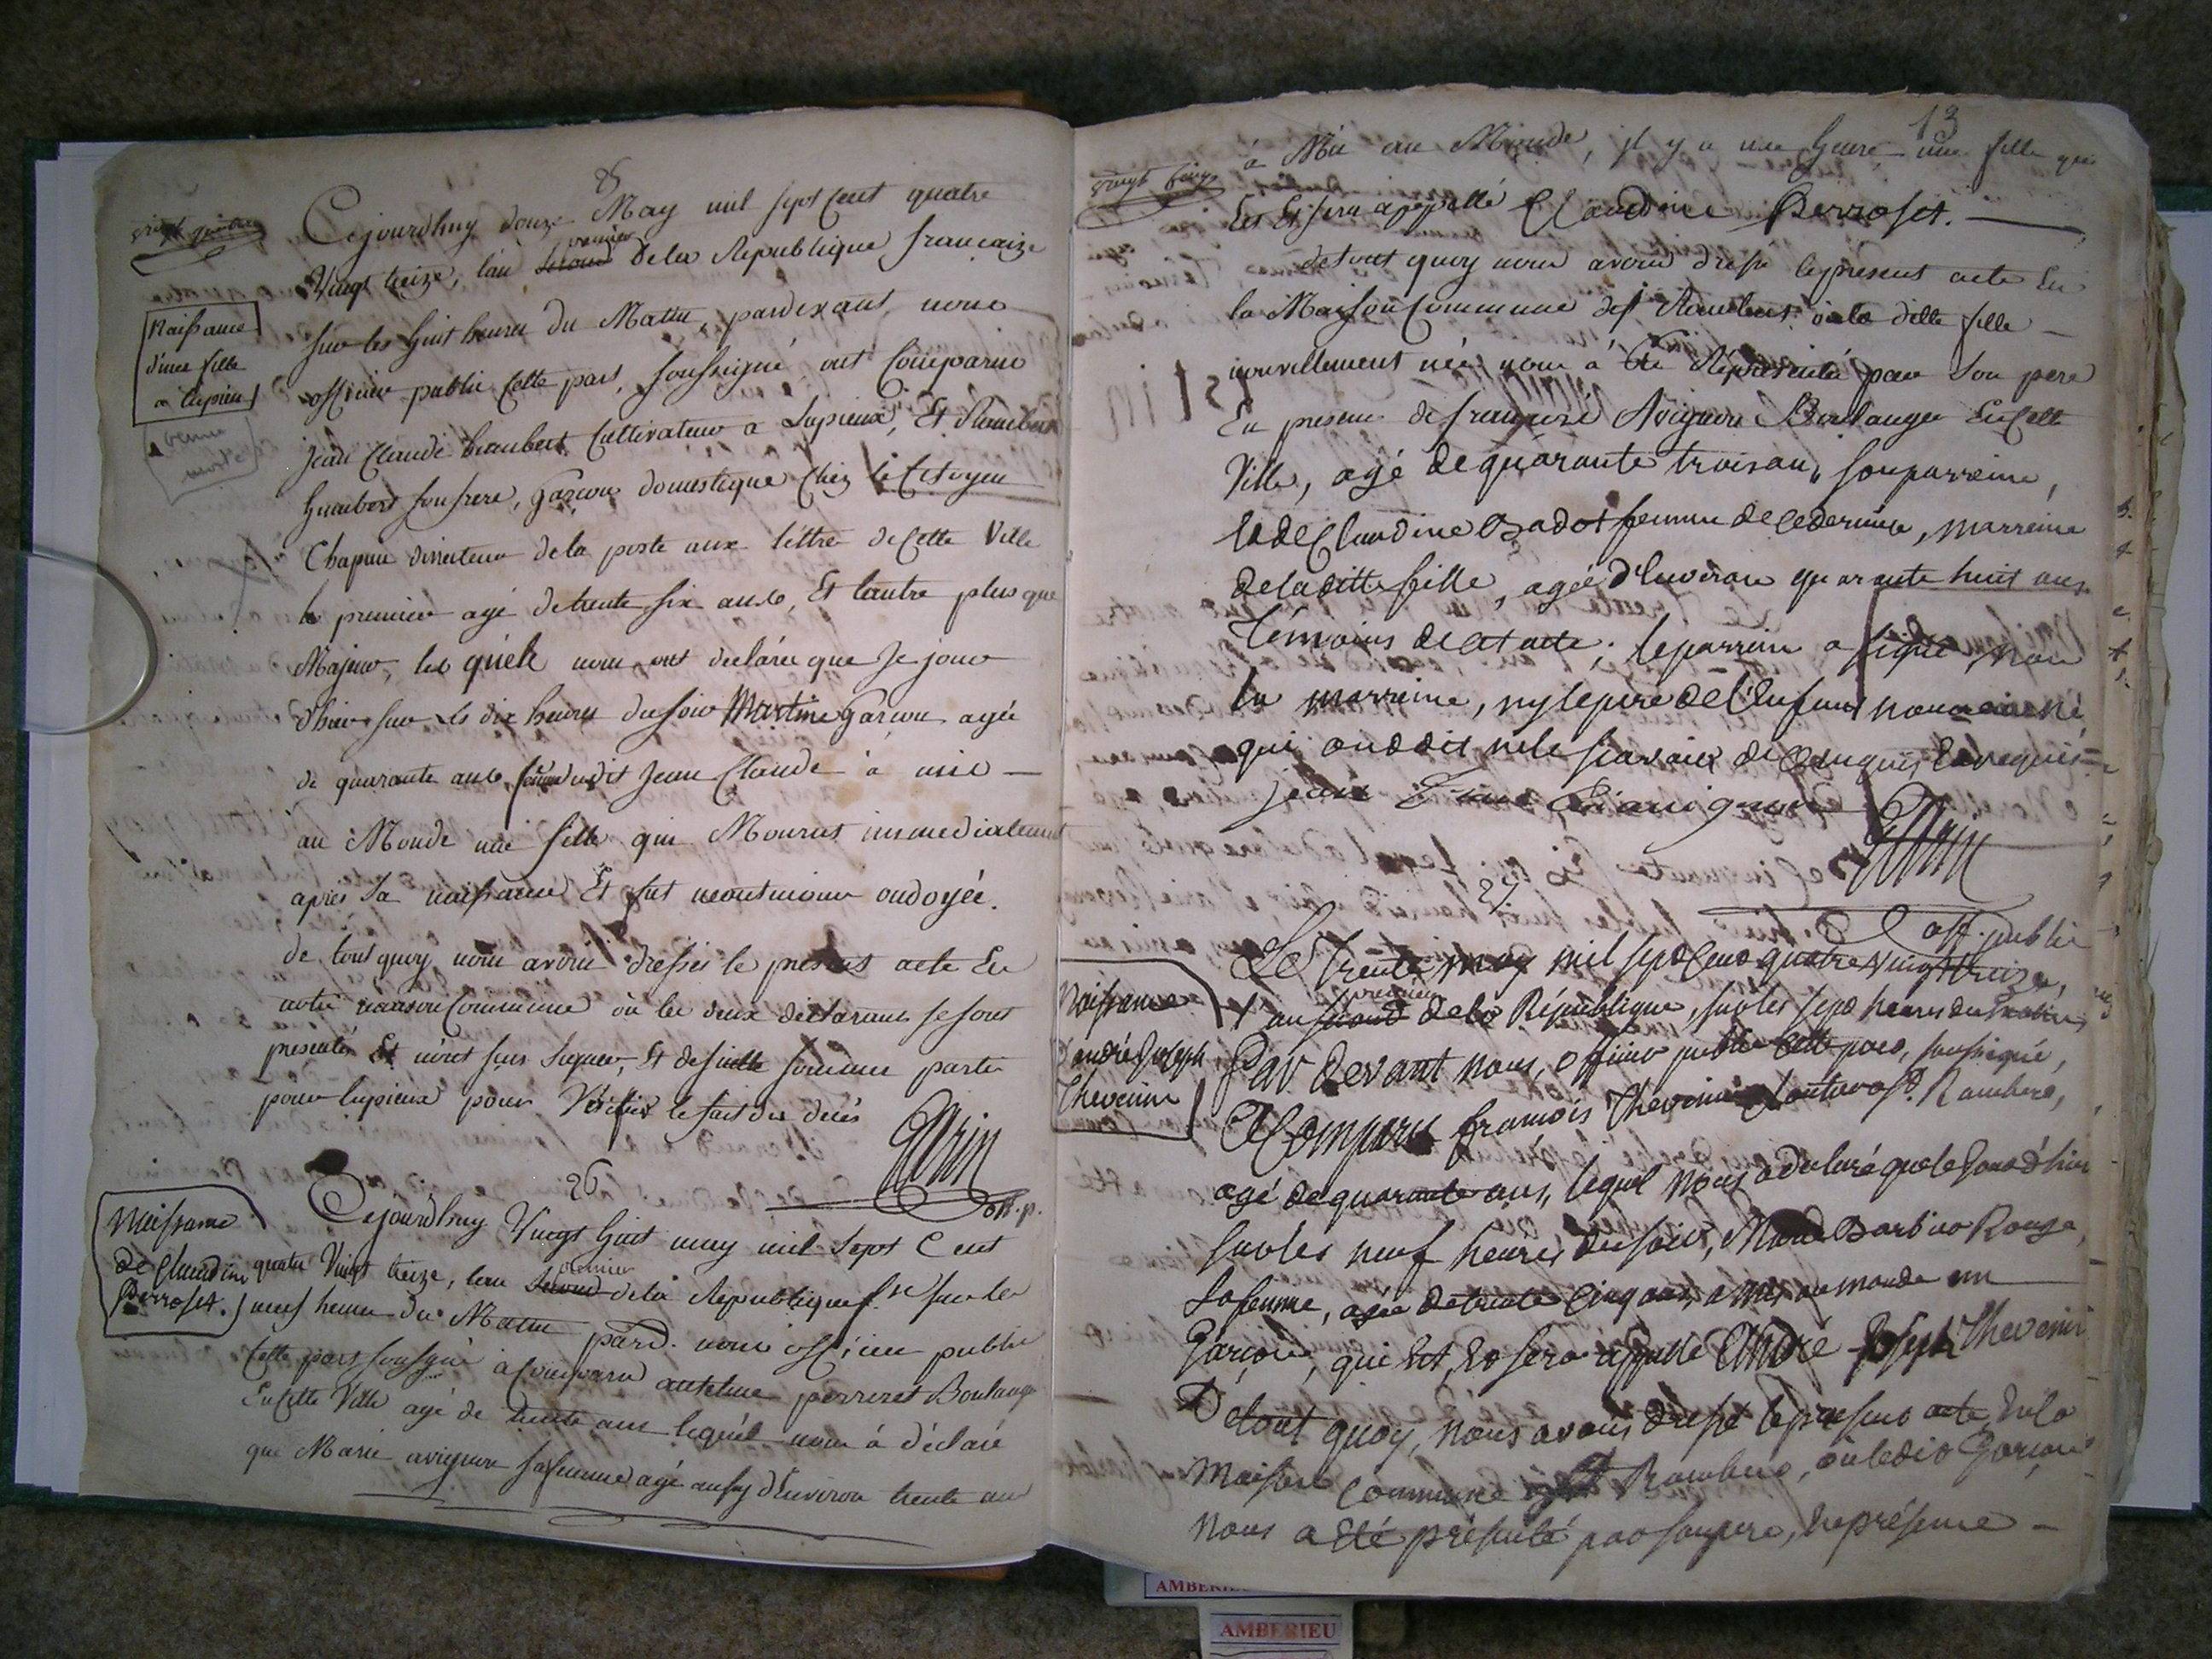 25
Cejourdhuy douze May mil sept Cent quatre
Vingt treize, l'an second premier de la Republique francaize
sur les huit heures du Matin, pardevant nous
Naissance
d'une fille
a Lupieu
officier public cette part, soussigné ont Comparu
Jean Claude humbert Cultivateur a Lupieux, Et Rambert
humbert son frere, garçon domestique Chez le Citoyen
Chapuu directeur de la poste aux léttre de Cette Ville
le premier agé de trente six ans, Et lautre plus que
Majeur, les quéls nous ont declarée que Je jour
d'hier sur les dix heures du soir Martine Garçon agée
de quarante ans femme dudit Jean Claude à mis
au Monde une fille qui Mourut immediatement
après sa naissance Et fut neontmoins ondoyée.
de tout quoy nous avons dresses le present acte En
notre maison Commune où les deux declarans se sont
presentés Et n'ont scus signer, Et de suitte sommes partis
pour lupieux pour Vérifier le fait du décès
off. p.
26
Naissance
de Claudine
Perroset.
Cejourdhuy Vingt huit may mil Sept Cent
quatre Vingt treize, l'an second premier de la Republique f.se sur les
neuf heures du Matin pard. nous officier public
Cette part sousigné à Comparu anthelme perroset Boulanger
En Cette Ville agé de trente ans lequél nous à déclaré
que Marie avignon sa femme agé aussy d'Environ trente ans
13
vingt cinq
à Mis au Monde, il y a une heure une fille qui
Est Et sera appellé Claudine Perroset.
de tout quoy nous avons dressé le present acte En
la Maison Commune de St Rambert où la ditte fille
nouvellement née nous à été Représenté par son pere
En presence de francois Avignon Boulanger En Cette
Ville, agé de quarante trois ans, son parreine,
la de Claudine Badot femme de ce dernier, marreine
de la ditte fille, agée d'Environ quarante huit ans
témoins de cet acte; le parrein a signé, non
la marreine, ny le pere de l'Enfant nouveau né
qui ont dit ne le scavoir de ce enquis Et requis
off. public
27
Le trente may mil sept Cent quatre vingt treize,
l'an second premier de la République, sur les sept heures du matin
Naissance
andré Joseph
Thevenin
Par devant nous, officier public cette part, soussigné,
A Comparu francois Thevenin de St. Rambert,
agé de quarante ans, lequel nous a declaré que le jour d'hier
sur les neuf heures du soir, Marie Barbio Rouge,
sa femme, agée de trente cinq ans, a mis au monde un
Garçon, qui Est Et sera appellé André Joseph Thevenin
De tout quoy, nous avons dressé le present acte En la
maison Commune de St Rambert, où ledit Garçon
nous a été présenté par son pere, En présence
AMBERIEU